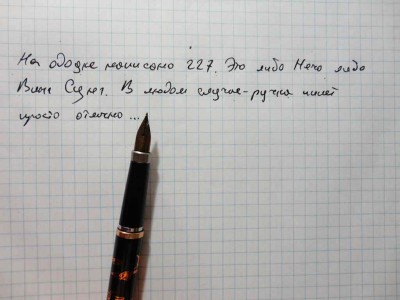 На ободке написано 227. Это либо Hero либо
Винг Сунг. В любом случае-ручка пишет
просто отлично...